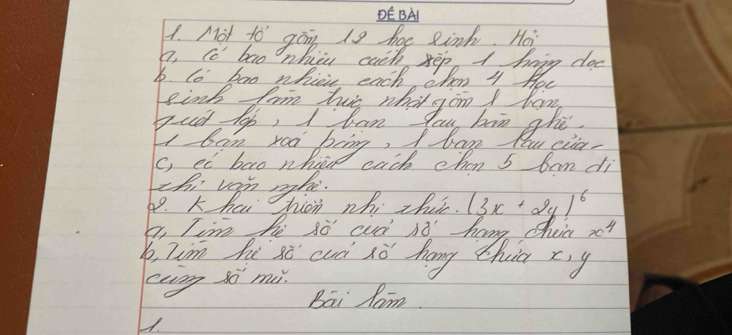 ĐỀ BÀI
1. Một tổ gồm 12 học sinh. Hỏi
a, Có bao nhiêu cách xếp 1 hàng dọc
b. Có bao nhiêu cách chọn 4 học
sinh làm trực nhật gồm 1 bạn
quét lớp, 1 bạn lau bàn ghế
1 bạn xoá bảng, 1 bạn lau cửa.
c, có bao nhiêu cách chọn 5 bạn đi
thi văn nghệ.
2. Khai triển nhị thức. (3x + 2y)⁶
a, Tìm hệ số của số hạng chứa x⁴
b, Tìm hệ số của số hạng chứa x, y
cùng số mũ.
Bài làm.
1.